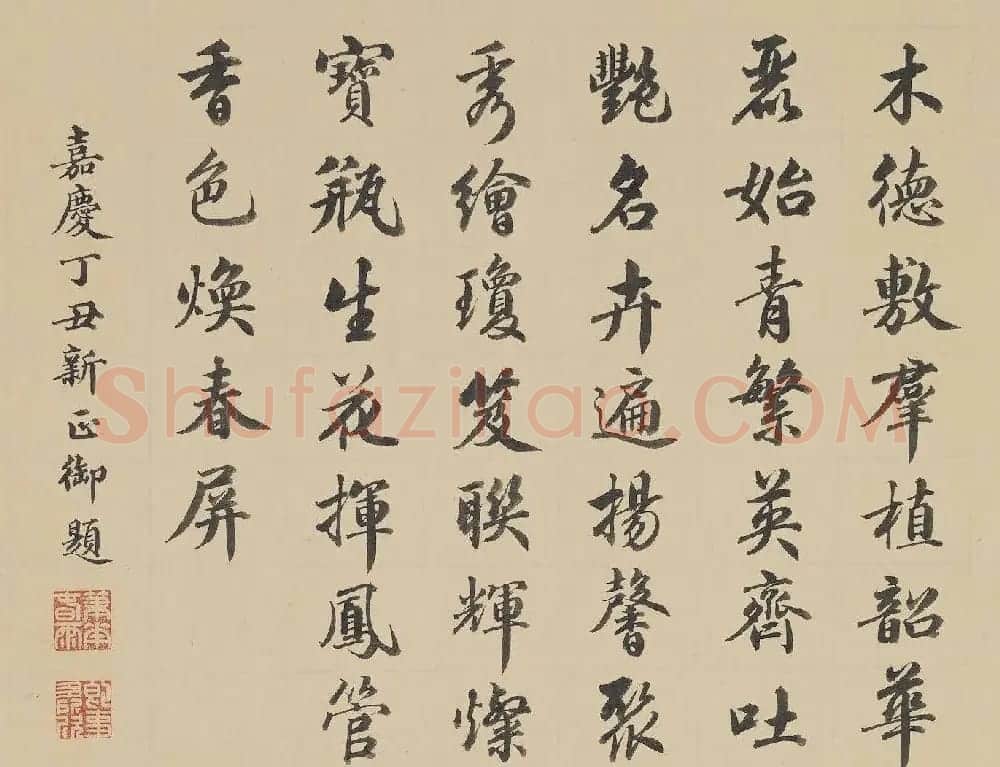 木德敷羣植韶華
麗始青繁英齊吐
艷名卉遍揚馨聚
秀繪瓊笈聯輝燦
寶瓶生花揮鳳管
香色煥春屏
嘉慶丁丑新正御題
Shufaziliao.COM